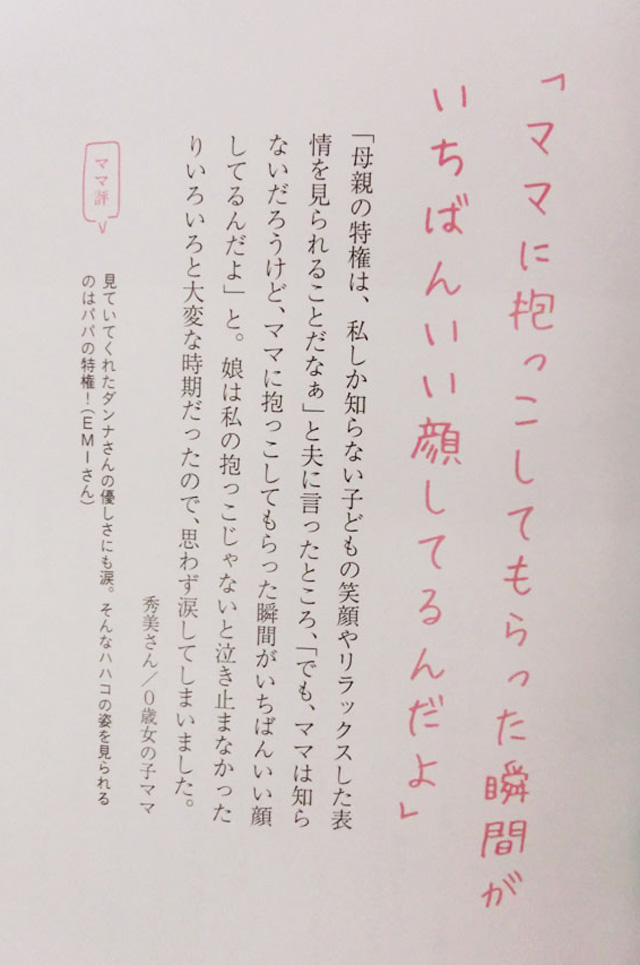 「ママに抱っこしてもらった瞬間が
いちばんいい顔してるんだよ」
「母親の特権は、私しか知らない子どもの笑顔やリラックスした表
情を見られることだなぁ」と夫に言ったところ、「でも、ママは知ら
ないだろうけど、ママに抱っこしてもらった瞬間がいちばんいい顔
してるんだよ」と。娘は私の抱っこじゃないと泣き止まなかった
りいろいろと大変な時期だったので、思わず涙してしまいました。
秀美さん／0歳女の子ママ
ママ評
見ていてくれたダンナさんの優しさにも涙。そんなハハコの姿を見られる
のはパパの特権！（EMIさん）